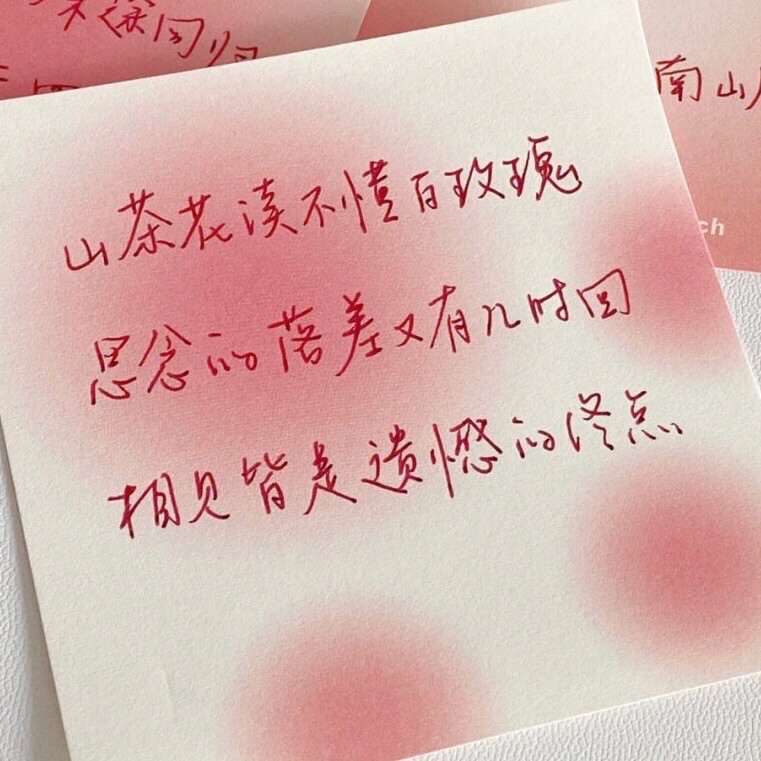 南山
ch
山茶花读不懂白玫瑰
思念的落差又有几时回
相见皆是遗憾的终点